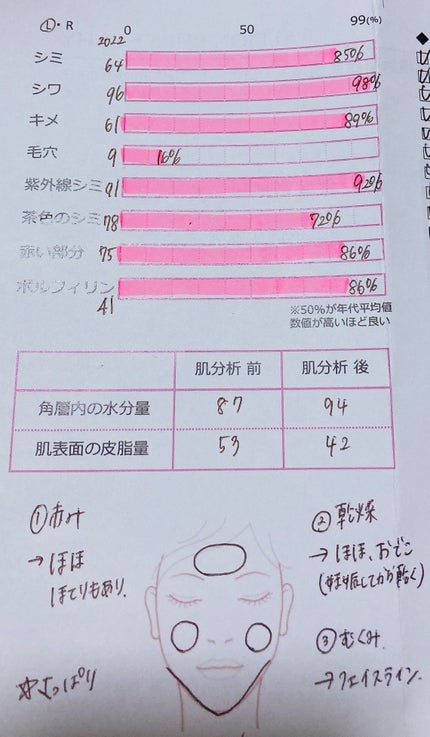 Ⓛ・R
0 50 99(%)
2022
シミ 64 85%
シワ 96 98%
キメ 61 89%
毛穴 9 16%
紫外線シミ 91 92%
茶色のシミ 78 72%
赤い部分 75 86%
ポルフィリン 41 86%
※50%が年代平均値
数値が高いほど良い
肌分析 前 肌分析 後
角層内の水分量 87 94
肌表面の皮脂量 53 42
①赤み
→ほほ
ほてりもあり.
②乾燥
→ほほ、おでこ
(妊娠してから乾く)
③むくみ.
→フェイスライン.
さっぱり